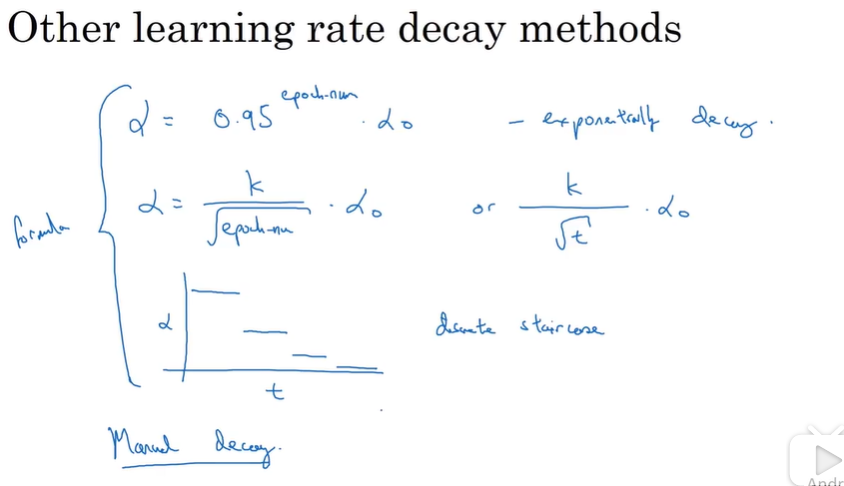 Other learning rate decay methods
α = 0.95^epoch-num · α₀ - exponentially decay.
formula
α = k / √epoch-num · α₀ or k / √t · α₀
α
discrete staircase
t
Manual decay.
Andr